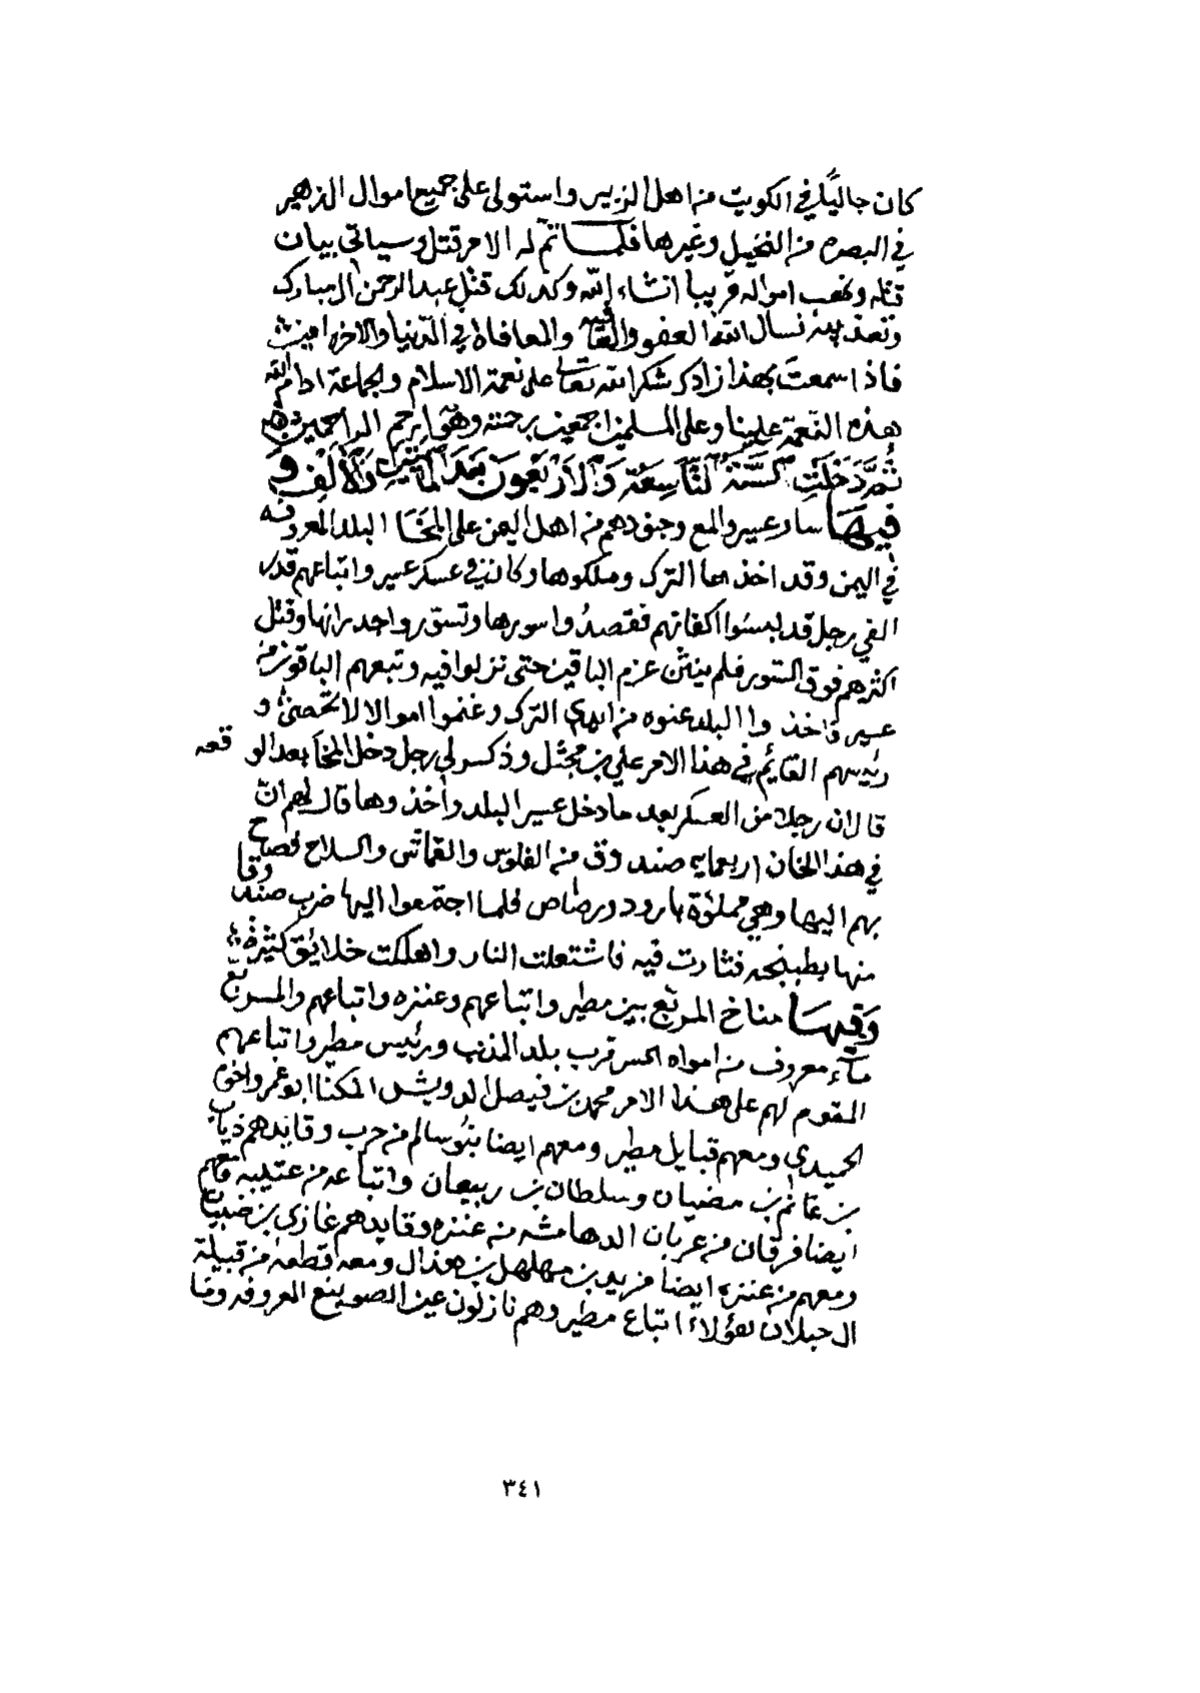 كان جاليًا في الكويت من اهل الزبير واستولى على جميع اموال الزهير
في البصره من النخيل وغيرها فلما تم له الامر قتل وسياتي بيان
قتله ونهب امواله قريبا انشاء الله وكذلك قتل عبد الرحمن المبارك
وتعذيبه نسال الله العفو والعافيه والمعافاة في الدنيا والاخره امين
فاذا سمعت بهذا زاد كر شكر الله تعالى على نعمة الاسلام والجماعة ادام الله
هذه النعمة علينا وعلى المسلمين اجمعين برحمته وهو ارحم الراحمين
ثم دخلت السنة التاسعة والاربعون بعد المايتين والالف و
فيها سار عسير والمع وجنودهم من اهل اليمن على المخا البلد المعروفه
في اليمن وقد اخذها الترك وملكوها وكان في عسكر عسير واتباعهم قدر
الفي رجل قد لبسوا اكفانهم فقصدوا سورها وتسوروا جدرانها وقتل
اكثرهم فوق السور فلم ينثن عزم الباقين حتى نزلوا فيه وتبعهم الباقون من
عسير واخذوا البلد عنوه من ايدي الترك وغنموا اموالا لا تحصى و
رئيسهم القايم في هذا الامر علي بن مجثل وذكر لي رجل دخل المخا بعد الوقعه
قال ان رجلا من العسكر بعد ما دخل عسير البلد واخذوها قال لهم ان
في هذا الخان اربعمايه صندوق من الفلوس والقماش والسلاح فصاح
بهم اليها وهي مملؤة بارود ورصاص فلما اجتمعوا اليها ضرب صندوقا
منها بطبنجه فثارت فيه فاشتعلت النار واهلكت خلايق كثيرة
وفيها مناخ المربع بين مطير واتباعهم وعنزه واتباعهم والمربع
ماء معروف من امواه السر قرب بلد المذنب ورئيس مطير واتباعهم
المقوم لهم على هذا الامر محمد بن فيصل الدويش المكنا ابو عمر واخوه
الحميدي ومعهم قبايل مطير ومعهم ايضا بنو سالم من حرب وقايدهم ذياب
بن غانم بن مضيان وسلطان بن ربيعان واتباعه من عتيبه معهم
ايضا فرقان من عربان الدهامشه من عنزه وقايدهم غازي بن ضبيان
ومعهم من عنزه ايضا مزيد بن مهلهل بن هذال ومعه قطعه من قبيلة
ال حبلان هؤلاء اتباع مطير وهم نازلون عين الصوينع المعروفه وما
٣٤١